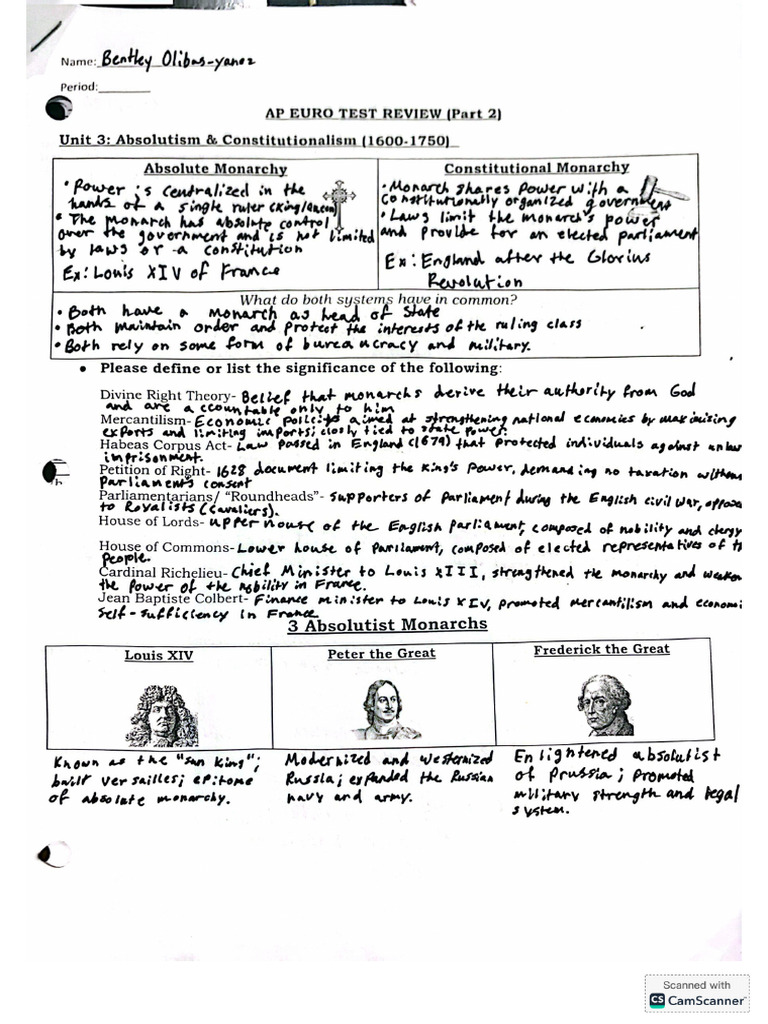 Name: Bentley Olibas-yanez
Period:
AP EURO TEST REVIEW (Part 2)
Unit 3: Absolutism & Constitutionalism (1600-1750)
Absolute Monarchy
• Power is centralized in the
hands of a single ruler (King/Queen)
• The monarch has absolute control
over the government and is not limited
by laws or a constitution
Ex: Louis XIV of France
Constitutional Monarchy
• Monarch shares power with a
constitutionally organized government
• Laws limit the monarch's power
and provide for an elected parliament
Ex: England after the Glorius
Revolution
What do both systems have in common?
• Both have a monarch as head of state
• Both maintain order and protect the interests of the ruling class
• Both rely on some form of bureaucracy and military.
• Please define or list the significance of the following:
Divine Right Theory- Belief that monarchs derive their authority from God
and are accountable only to him
Mercantilism- Economic policies aimed at strengthening national economies by maximizing
exports and limiting imports; closly tied to state power.
Habeas Corpus Act- Law passed in England (1679) that protected individuals against unlaw
imprisonment.
Petition of Right- 1628 document limiting the king's power, demanding no taxation withou
Parliament's consent
Parliamentarians/ "Roundheads"- supporters of Parliament during the English civil war, oppose
to Royalists (Cavaliers).
House of Lords- upper house of the English Parliament, composed of nobility and clergy
House of Commons- Lower house of Parliament, composed of elected representatives of th
people.
Cardinal Richelieu- Chief Minister to Louis XIII, strengthened the monarchy and weaken
the power of the nobility in France.
Jean Baptiste Colbert- Finance minister to Louis XIV, promoted mercantilism and economi
self-sufficiency in France
3 Absolutist Monarchs
Louis XIV
Peter the Great
Frederick the Great
Known as the "sun king";
built versailles; epitome
of absolute monarchy.
Modernized and westernized
Russia; expanded the Russian
navy and army.
Enlightened absolutist
of Prussia; promoted
military strength and legal
system.
Scanned with
CS CamScanner